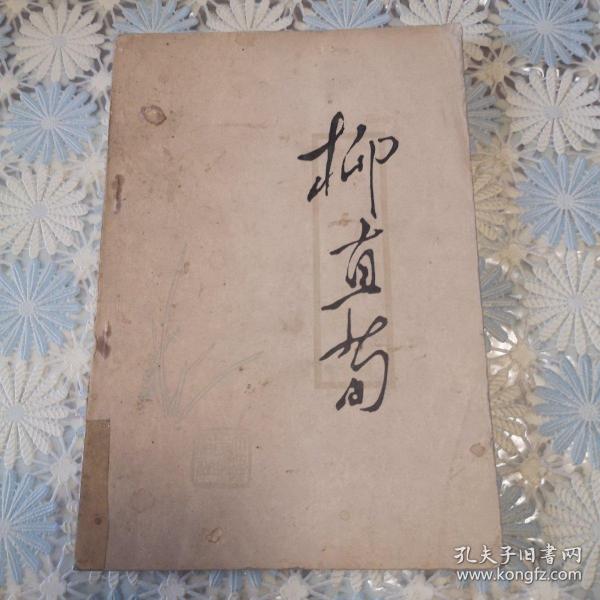 柳直荀
孔夫子旧書网
www.kongfz.com